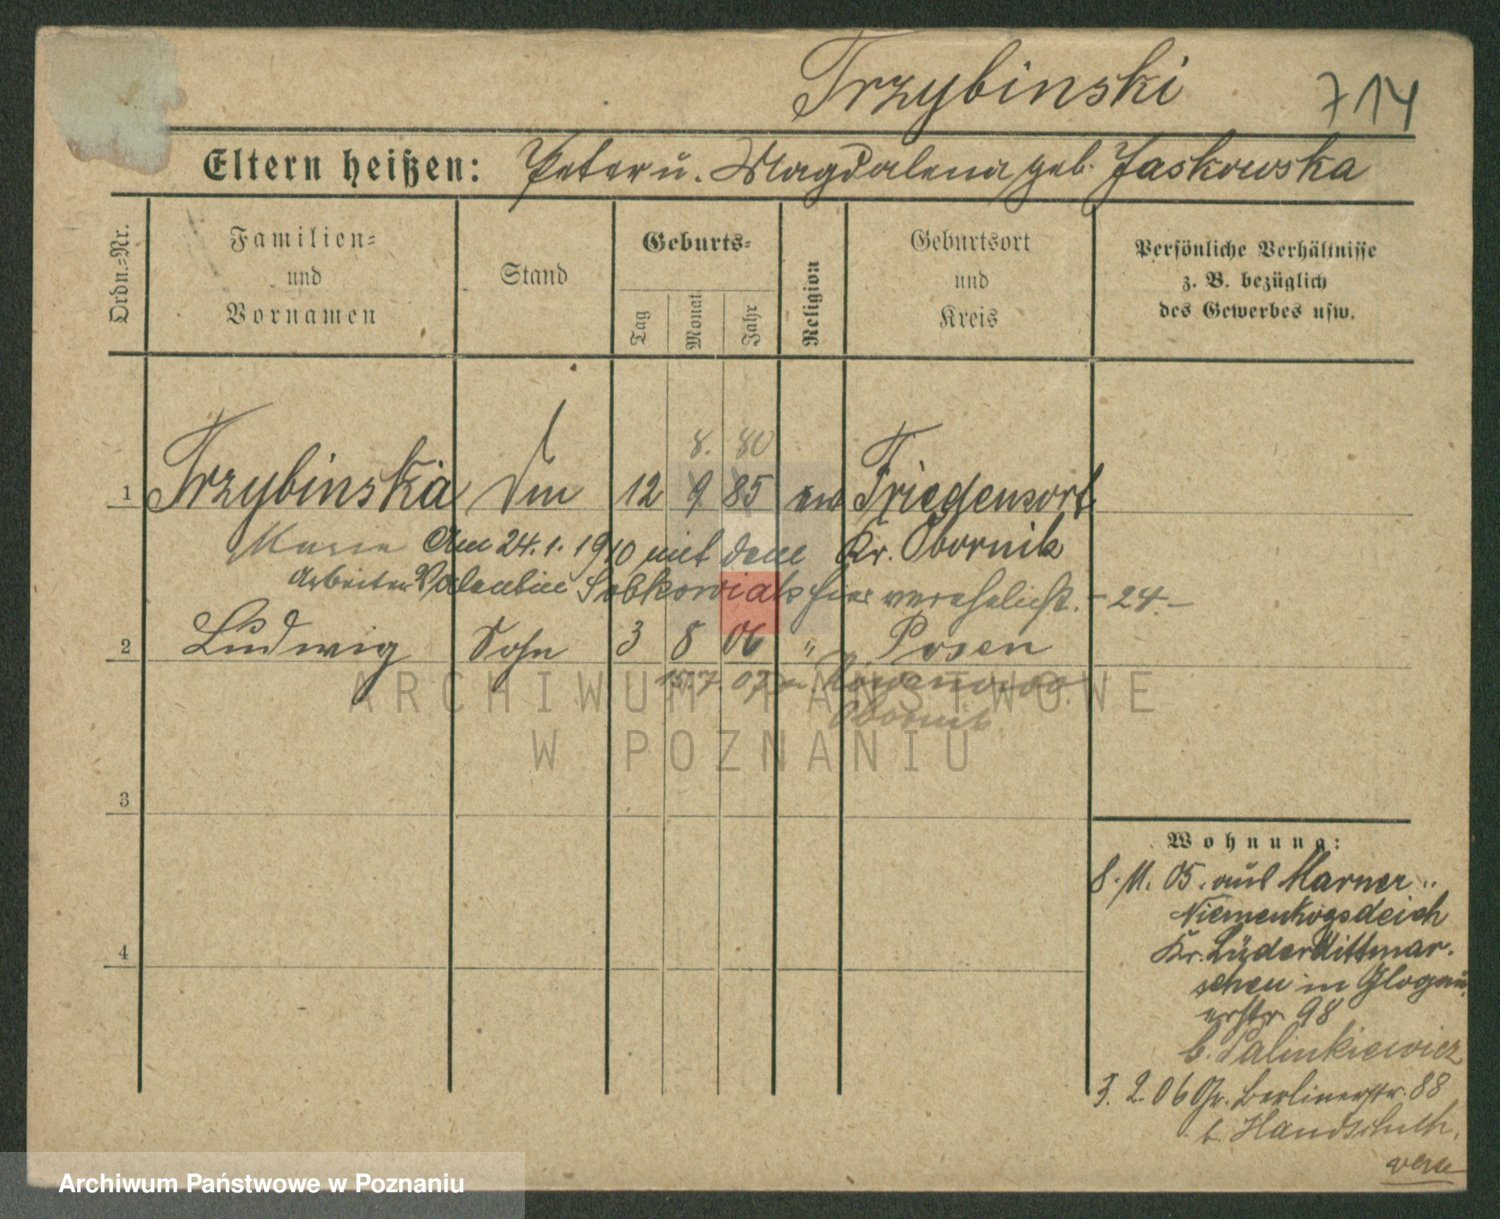 Trzybinski 714
Eltern heißen: Peter u. Magdalena geb. Jaskowska
Ordn.-Nr.
Familien-
und
Vornamen
Stand
Geburts-
Tag
Monat
Jahr
Religion
Geburtsort
und
Kreis
Persönliche Verhältnisse
z. B. bezüglich
des Gewerbes usw.
8. 80
1 Trzybinska 12 9 85 Friedensort
Am 24.1.1910 mit dem Kr. Obornik
Arbeiter Valentin Sobkowiak hier verehelicht. - 24. -
2 Ludwig Sohn 3 8 06 " Posen
15. 7. 07
Obornik
ARCHIWUM PAŃSTWOWE
W POZNANIU
3
4
Wohnung:
8. 11. 05. aus Marner
Niemenkogsdeich
Kr. Süderdittmar-
schen in Glogau-
erstr 98
b. Palinkiewicz
3. 2. 06 Gr. Berlinerstr. 88
b. Handschuh.
Archiwum Państwowe w Poznaniu